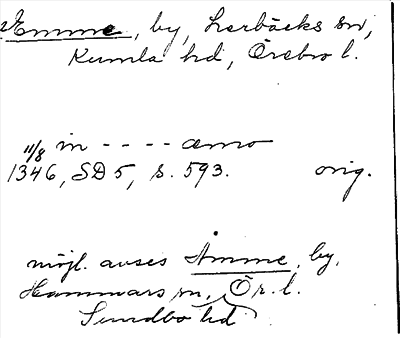 Emme, by, Lerbäcks sn,
Kumla hd, Örebro l.
11/8 in - - - - æmo
1346, SD 5, s. 593. orig.
möjl. avses Amme, by,
Hammars sn, Ör. l.
Sundbo hd